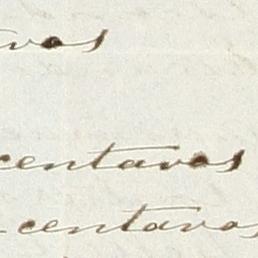 centavos
centavos